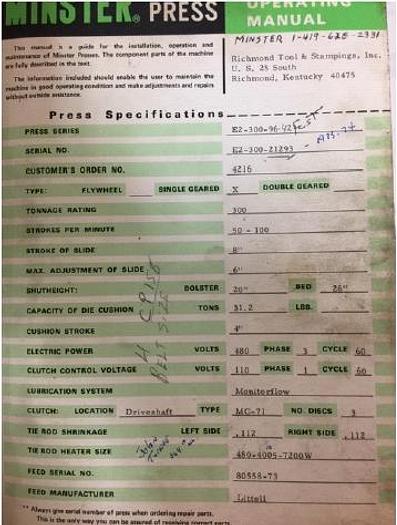 MINSTER PRESS OPERATING MANUAL
MINSTER 1-419-628-2331
This manual is a guide for the installation, operation and
maintenance of Minster Presses. The component parts of the machine
are fully described in the text.
The information included should enable the user to maintain the
machine in good operating condition and make adjustments and repairs
without outside assistance.
Richmond Tool & Stampings, Inc.
U. S. 25 South
Richmond, Kentucky 40475
Press Specifications
PRESS SERIES E2-300-96-42
SERIAL NO. E2-300-21293
CUSTOMER'S ORDER NO. 4216
TYPE: FLYWHEEL SINGLE GEARED X DOUBLE GEARED
TONNAGE RATING 300
STROKES PER MINUTE 50 - 100
STROKE OF SLIDE 8"
MAX. ADJUSTMENT OF SLIDE 6"
SHUTHEIGHT: BOLSTER 20" BED 26"
CAPACITY OF DIE CUSHION TONS 31.2 LBS.
CUSHION STROKE 4"
ELECTRIC POWER VOLTS 480 PHASE 3 CYCLE 60
CLUTCH CONTROL VOLTAGE VOLTS 110 PHASE 1 CYCLE 60
BELT SIZE
LUBRICATION SYSTEM Monitorflow
CLUTCH: LOCATION Driveshaft TYPE MC-71 NO. DISCS 3
TIE ROD SHRINKAGE LEFT SIDE .112 RIGHT SIDE .112
John
TIE ROD HEATER SIZE 480-4005-7200W
FEED SERIAL NO. 80558-73
FEED MANUFACTURER Littell
** Always give serial number of press when ordering repair parts.
This is the only way you can be assured of receiving correct parts.